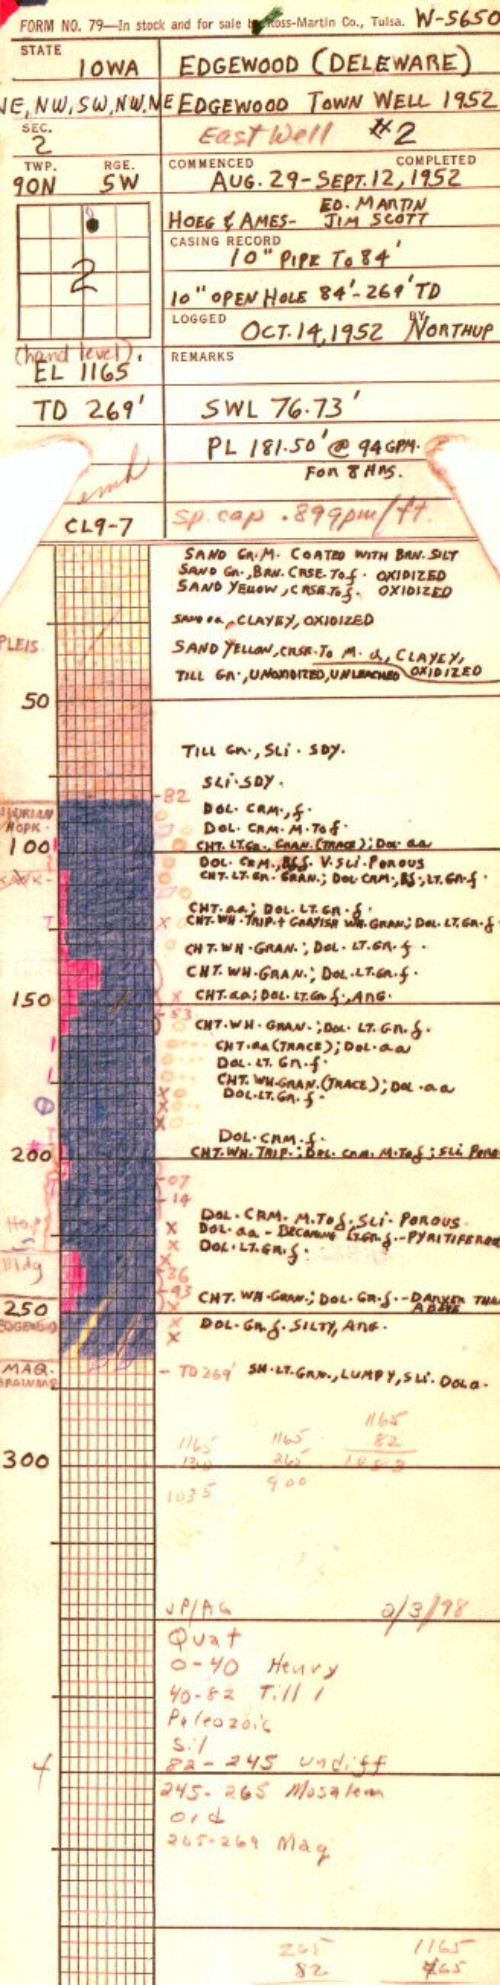 FORM NO. 79—In stock and for sale by Ross-Martin Co., Tulsa. W-5650
STATE
IOWA EDGEWOOD (DELEWARE)
NE, NW, SW, NW, NE EDGEWOOD TOWN WELL 1952
SEC. East Well #2
2
TWP. RGE. COMMENCED COMPLETED
90N 5W AUG. 29-SEPT. 12, 1952
ED. MARTIN
HOEG & AMES- JIM SCOTT
CASING RECORD
10" PIPE TO 84'
2
10" OPEN HOLE 84'-269' TD
LOGGED BY
OCT. 14, 1952 NORTHUP
(hand level). REMARKS
EL 1165
TD 269' SWL 76.73'
PL 181.50' @ 94 GPM.
FOR 8 HRS.
CL9-7 sp. cap .899pm/ft.
SAND GR. M. COATED WITH BRN. SILT
SAND GR., BRN. CRSE. TO f. OXIDIZED
SAND YELLOW, CRSE. TO f. OXIDIZED
SAND aa, CLAYEY, OXIDIZED
PLEIS.
SAND YELLOW, CRSE. TO M. a, CLAYEY,
OXIDIZED
TILL GR., UNOXIDIZED, UNLEACHED
50
TILL GR., SLI. SDY.
SLI. SDY.
-82
DOL. CRM., f.
HOPK. DOL. CRM. M. TO f.
100 CHT. LT. GR., GRAN. (TRACE); DOL. aa
DOL. CRM., V. SLI. POROUS
CHT. LT. GR. GRAN.; DOL. CRM, LT. GR. f.
CHT. aa; DOL. LT. GR. f.
CHT. WH. TRIP. + GRAYISH WH. GRAN.; DOL. LT. GR. f
CHT. WH. GRAN.; DOL. LT. GR. f.
CHT. WH. GRAN.; DOL. LT. GR. f.
150 CHT. aa; DOL. LT. GR. f., ANG.
-53
CHT. WH. GRAN.; DOL. LT. GR. f.
CHT. aa (TRACE); DOL. aa
DOL. LT. GR. f.
CHT. WH. GRAN. (TRACE); DOL. aa
DOL. LT. GR. f.
DOL. CRM. f.
200 CHT. WH. TRIP.; DOL. CRM. M. TO f; SLI. PORO
-07
-14
Hop DOL. CRM. M. TO f. SLI. POROUS
DOL. aa - BECOMING LT. GR. f. - PYRITIFEROU
DOL. LT. GR. f.
Bldg
-36
-43 CHT. WH. GRAN.; DOL. GR. f. -DARKER THA
ABOVE
250
EDGEWOOD DOL. GR. f. SILTY, ANG.
MAQ.
BRAINARD - TD 269' SH. LT. GRN., LUMPY, SLI. DOL.
1165
1165 1165 82
130 265 1083
300
1035 900
JP/AG 2/3/98
Quat
0-40 Henry
40-82 Till 1
Paleozoic
Sil
82-245 undiff
245-265 Mosalem
Ord
265-269 Maq
265 1165
82 265